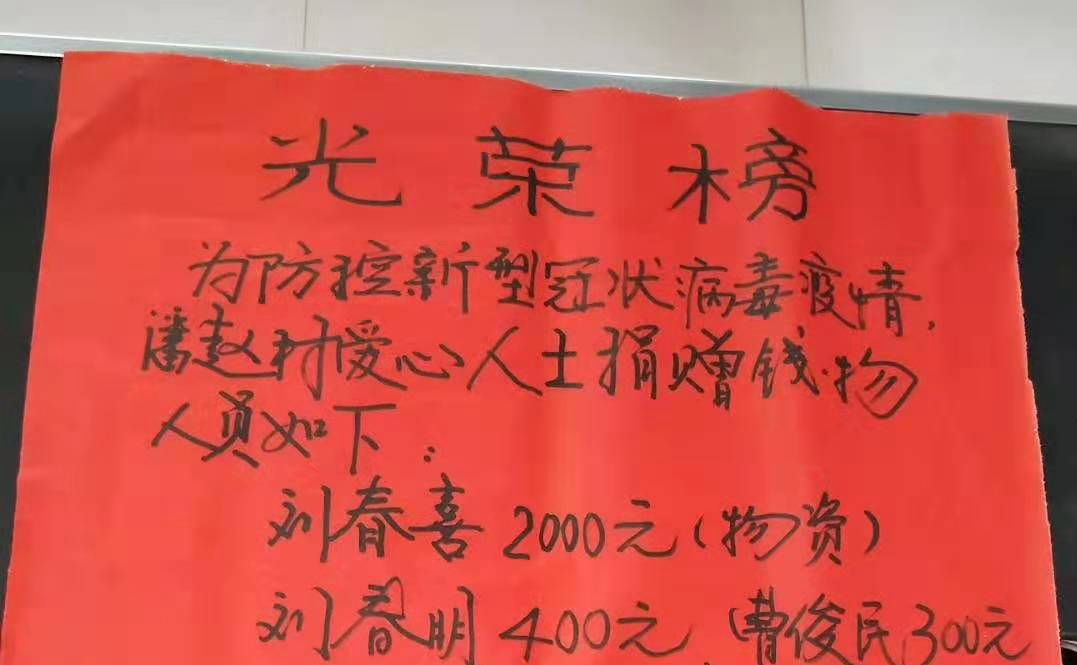 光荣榜
为防控新型冠状病毒疫情,
潘赵村爱心人士捐赠钱.物
人员如下:
刘春喜2000元(物资)
刘春明400元 曹俊民300元